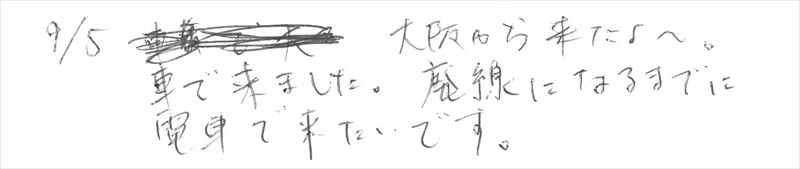 9/5 大阪から来たよ〜。
車で来ました。廃線になるまでに
電車で来たいです。